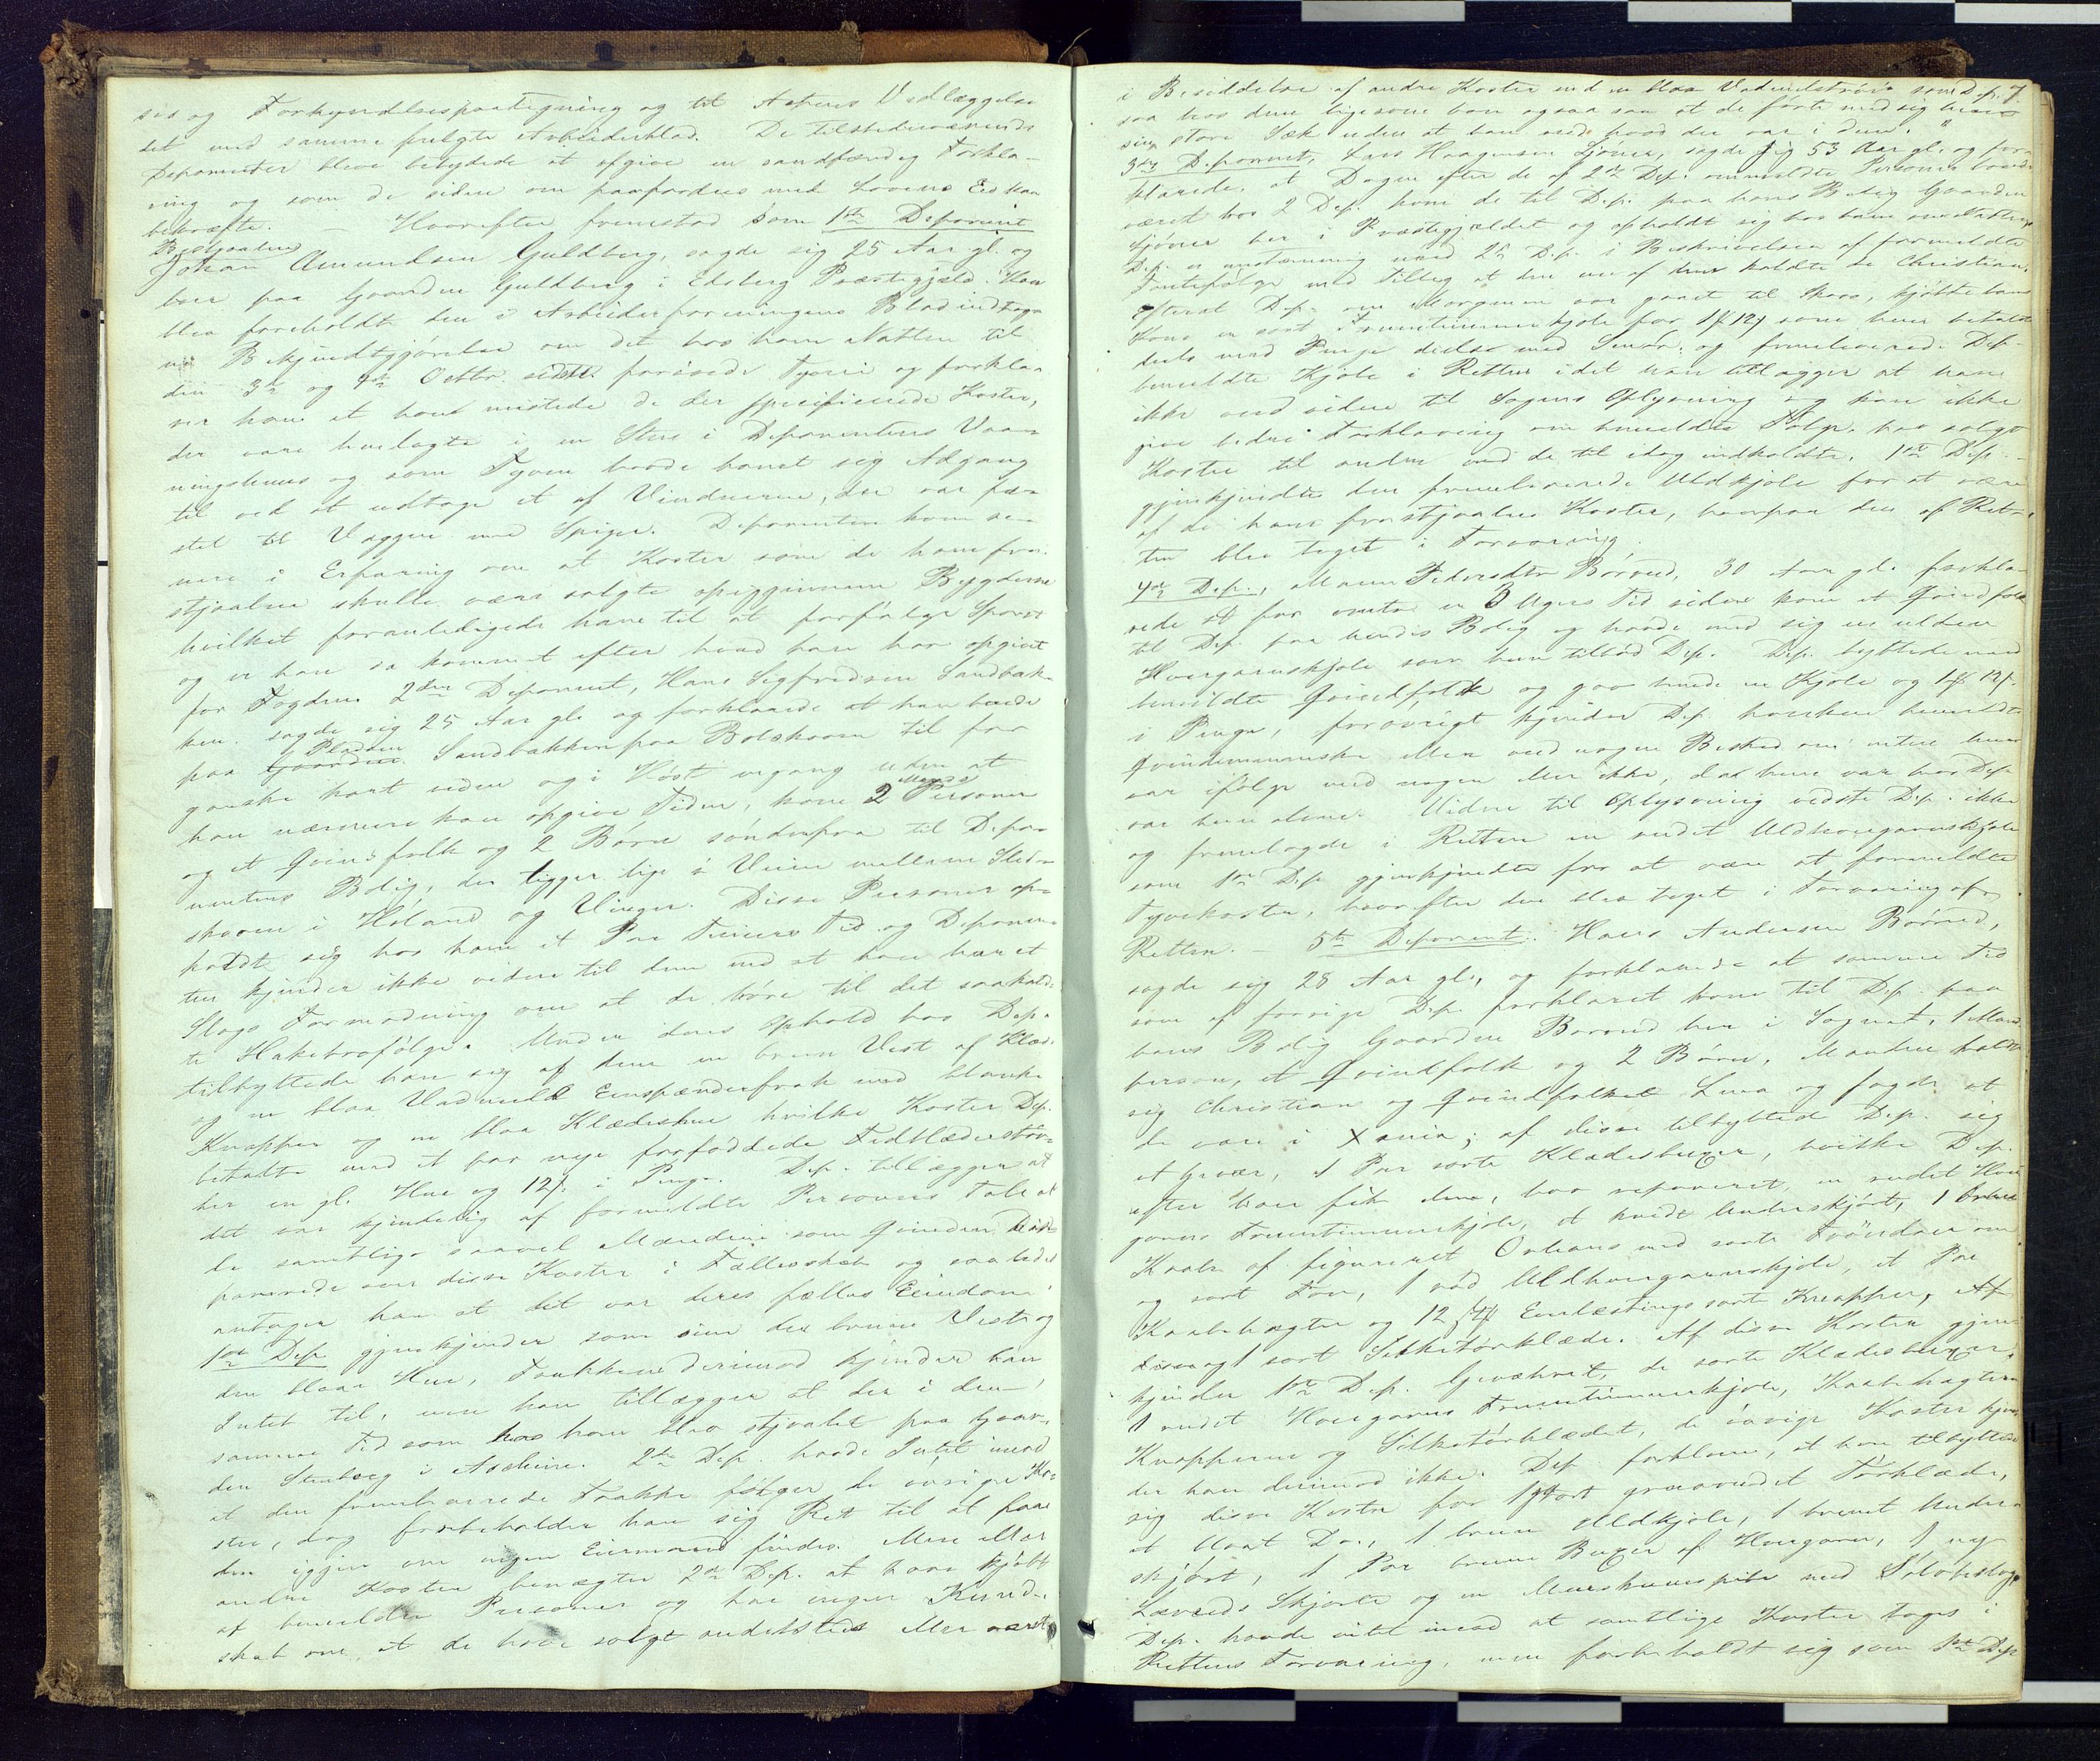 sis og Forkyndelsespaategning og til Actens Vedlæggelse
det med samme fulgte Arbeiderblad. De tilstedeværende
Deponenter bleve betydede at afgive en sandfærdig Forkla-
ring og som de siden om paafordres med Lovens Ed kan
bekræfte. — Hvorefter fremstod som 1ste Deponent
Bestjaalne
Johan Amundsen Guldberg, sagde sig 25 Aar gl. og
boer paa Gaarden Guldberg i Eidsberg Præstegjeld. Han
blev foreholdt den i Arbeiderforeningens Blad indtag-
ne Bekjendtgjørelse om det hos ham Natten til
den 3die og 4de Octbr. sidstl. forøvede Tyveri og forkla-
rer han at han mistede de der specificerede Koster,
der vare henlagte i en Stue i Deponentens Vaa-
ningshuus og som Tyven havde banet sig Adgang
til ved at udtage et af Vinduerne, der var fæ-
stet til Væggen med Spiger. Deponenten kom se-
nere i Erfaring om at Koster som de ham fra-
stjaalne skulle være solgte igjennem Bygderne
hvilket foranledigede ham til at forfølge Sporet
og er han da kommet efter hvad han har opgivet
for Fogden. 2den Deponent, Hans Sigfredsen Sandbak-
ken sagde sig 25 Aar gl. og forklarede at han boede
paa Pladsen Sandbakken paa Bolskoven til for
ganske kort siden og i Høst engang uden at
han nærmere kan opgive Tiden, kom 2 Mands Personer
og et Qvindfolk og 2 Børn søndenfra til Depo-
nentens Bolig, der ligger lige i Veien mellem Sted-
skoven i Høland og Vinger. Disse Personer op-
holdt sig hos ham et Par Timers Tid og Deponen-
ten kjender ikke videre til dem end at han har et
Slags Formodning om at de høre til det saakald-
te Hakebrofølge. Under deres Ophold hos Dep.
tilbyttede han sig af dem en brun Vest af Klæde
og en blaa Vadmels Eenspænderfrak med blanke
Knapper og en blaa Klædeshue hvilke Koster Dep.
betalte med et par nye forfoddede Fedtlæderstøv-
ler en gl. Hue og 12 s. i Penge. Dep. tillægger at
det var kjendelig af formeldte Personers Tale at
de samtlige saavel Mændene som Qvinden dis-
ponerede over disse Koster i Fællesskab og saaledes
antager han at det var deres fælles Eiendom.
1ste Dep. gjenkjender som sin den brune Vest og
den blaae Hue, Frakken derimod kjender han
Intet til, men han tillægger at der i den
samme Tid som hos ham blev stjaalet paa Gaar-
den Stenberg i Askim. 2den Dep. havde Intet imod
at den frembærede Frakke følger de øvrige Ko-
ster, dog forbeholder han sig Ret til at faae
den igjen om ingen Eiermand findes. Mere eller
andre Koster benægter 2den Dep. at have kjøbt
af bemeldte Personer og har ingen Kund-
skab om, at de have solgt andetsteds eller været
7.
i Besiddelse af andre Koster end en blaa Vadmelstrøie som Dep.
saa hos dem ligesom han ogsaa saa at de førte med sig
store Sæk uden at han veed hvad der var i dem.
3die Deponent, Lars Haagensen Sjøner, sagde sig 53 Aar gl. og for-
klarede, at Dagen efter de af 2den Dep. ommeldte Personer havde
været hos 2 Dep. kom de til Dep. paa hans Bolig Gaarden
Sjøner her i Præstegjeldet og opholdt sig hos ham om Natten.
Dep. er enstemmig med 2den Dep. i Beskrivelsen af formeldte
Fantefølge med Tillæg at den ene af dem kaldte de Christian.
Efterat Dep. om Morgenen var gaaet til Skovs, kjøbte hans
Kone en sort Fruentimmerkjole for 1 12 s som hun betalte
deels med Penge deels med Smør, og fremleverede Dep.
bemeldte Kjole i Retten idet han tillægger at han
ikke veed videre til Sagens Oplysning og kan ikke
give bedre Forklaring om bemeldte Følge har solgt
Koster til andre end de til idag indkaldte. 1ste Dep.
gjenkjendte den fremleverede Uldkjole for at være
af de ham frastjaalne Koster, hvorpaa den af Ret-
ten blev taget i Forvaring.
4de Dep., Maren Pedersdtr Børud, 30 Aar gl. forkla-
rede at for omtr. en 3 Ugers Tid siden kom et Qvindfolk
til Dep. paa hendes Bolig og havde med sig en ulden
Hvergarnskjole som hun tilbød Dep. Dep. byttede med
bemeldte Qvindfolk og gav hende en Kjole og 1 12 s.
i Penge, forøvrigt kjender Dep. hverken bemeldte
Qvindemenneske eller veed nogen Besked om enten hun
var ifølge med nogen eller ikke, da hun var hos Dep.
var hun alene. Videre til Oplysning vidste Dep. ikke
og fremlagde i Retten en rudet Uldhvergarnskjole
som 1ste Dep. gjenkjendte for at være af formeldte
Tyvekoster, hvorefter den blev taget i Forvaring af
Retten. — 5te Deponent Hans Andersen Børud,
sagde sig 28 Aar gl., og forklarede at samme Tid
som af forrige Dep. forklaret kom til Dep. paa
hans Bolig Gaarden Børud her i Sognet, 1 Mands-
person, et Qvindfolk og 2 Børn, Manden kaldte
sig Christian og Qvindfolket Lina og sagde at
de vare i Xania; af disse tilbyttede Dep. sig
et Gevær, 1 Par sorte Klædesbuxer, hvilke Dep.
efter han fik dem, har repareret, en rudet Hver-
garns Fruentimmerkjole, et hvidt Underskjørt, 1
Kaabe af figureret Orleans med sorte Frøndser om
og sort Foer, 1 rød Uldhvergarnskjole, et Par
Kaabehægter og 12 Eenlestings sorte Knapper,
1 sort Silketørklæde. Af disse Koster gjen-
kjender 1ste Dep. Geværet, de sorte Klædesbuxer,
1 rudet Hvergarns Fruentimmerkjole, Kaabehægterne
Knapperne og Silketørklædet, de øvrige Koster kjen-
der han derimod ikke. Dep. forklarer, at han tilbyttede
sig disse Koster for 1 stort graarudet Tørklæde,
et blaat Do., 1 brun Uldkjole, 1 brunet Under-
skjørt, 1 Par brune Buxer af Hvergarn, 1 ny
Lærreds Skjorte og en Merskumspibe med Sølvbeslag.
Dep. havde intet imod at samtlige Koster toges i
Rettens Forvaring, men forbeholdt sig som 1ste Dep.